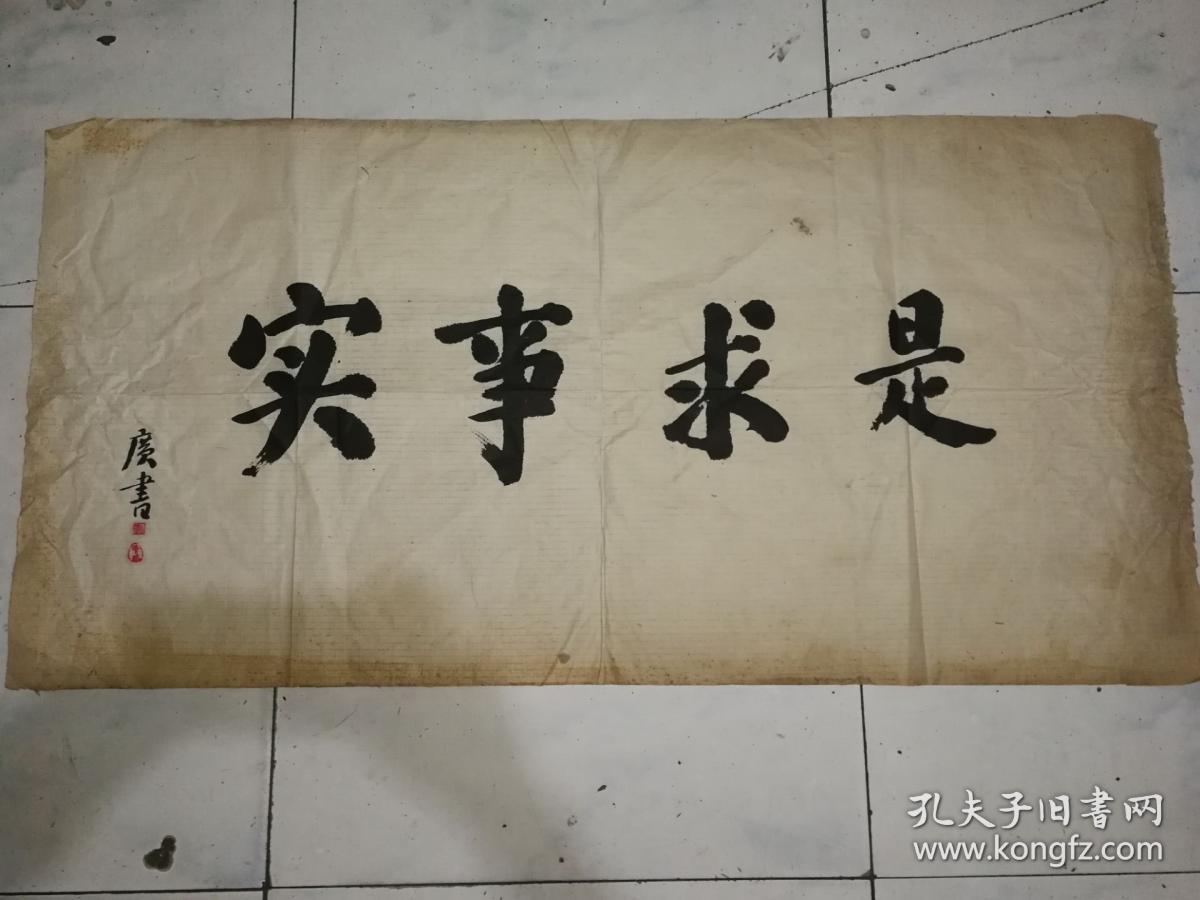 实事求是
廣書
孔夫子旧書网
www.kongfz.com